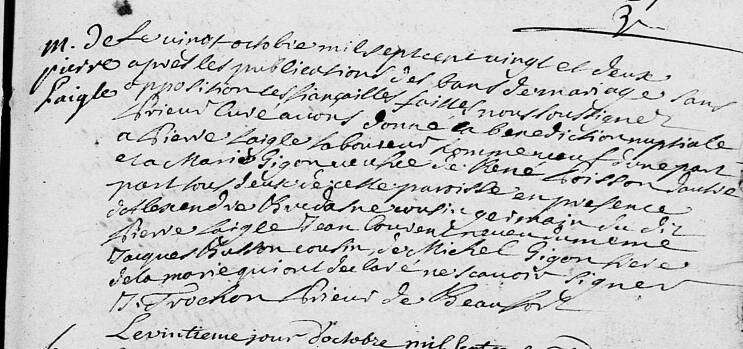 m. de Le vingt octobre mil sept cent vingt et deux
pierre apres les publications des bans de mariage sans
Laigle opposition les fiançailles faittes nous soussigner
Prieur Curé avons donné la benediction nuptiale
a Pierre Laigle laboureur homme veuf d'une part
et a Marie Gigon veufve de René Poisson d'autre
part tous deux de cette paroisse en presence
d'Alexendre cousin germain du dit
Pierre Laigle Jean neveu du meme
Jacques Busson cousin, de Michel Gigon frere
de la marie qui ont declaré ne scavoir signer
J. Trochon Prieur de Beaufort
Le vintieme jour d'octobre mil sept